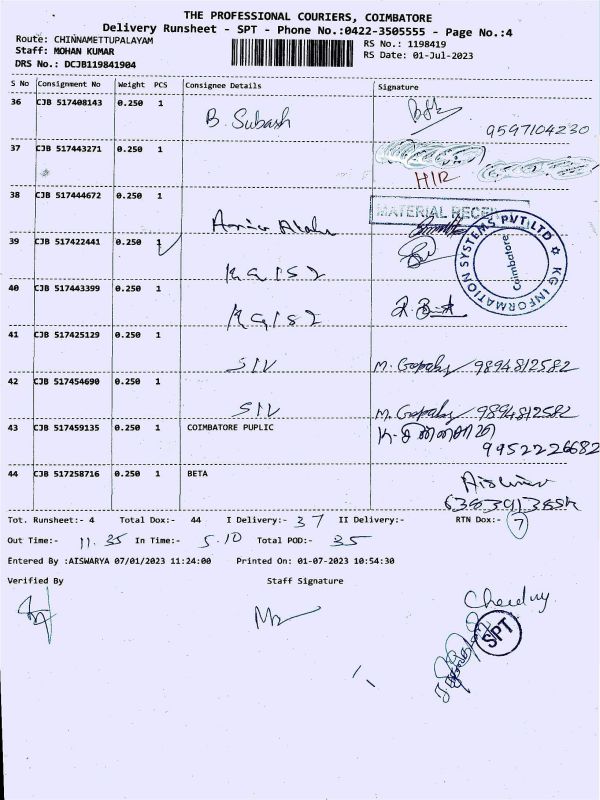 THE PROFESSIONAL COURIERS, COIMBATORE
Delivery Runsheet - SPT - Phone No.:0422-3505555 - Page No.:4
Route: CHINNAMETTUPALAYAM
Staff: MOHAN KUMAR
RS No.: 1198419
DRS No.: DCJB119841904
RS Date: 01-Jul-2023
S No Consignment No Weight PCS Consignee Details Signature
36 CJB 517408143 0.250 1 B. Subash 9597104230
37 CJB 517443271 0.250 1
38 CJB 517444672 0.250 1
MATERIAL
KG INFORMATION SYSTEMS PVT LTD
Coimbatore
39 CJB 517422441 0.250 1 KGISL
40 CJB 517443399 0.250 1 KGISL
41 CJB 517425129 0.250 1 SIV M. Gopal 9894812582
42 CJB 517454690 0.250 1 SIV M. Gopal 9894812582
43 CJB 517459135 0.250 1 COIMBATORE PUPLIC 9952226682
44 CJB 517258716 0.250 1 BETA
Tot. Runsheet:- 4 Total Dox:- 44 I Delivery:- 37 II Delivery:- RTN Dox:- 7
Out Time:- 11.35 In Time:- 5.10 Total POD:- 35
Entered By :AISWARYA 07/01/2023 11:24:00 Printed On: 01-07-2023 10:54:30
Verified By Staff Signature
SPT